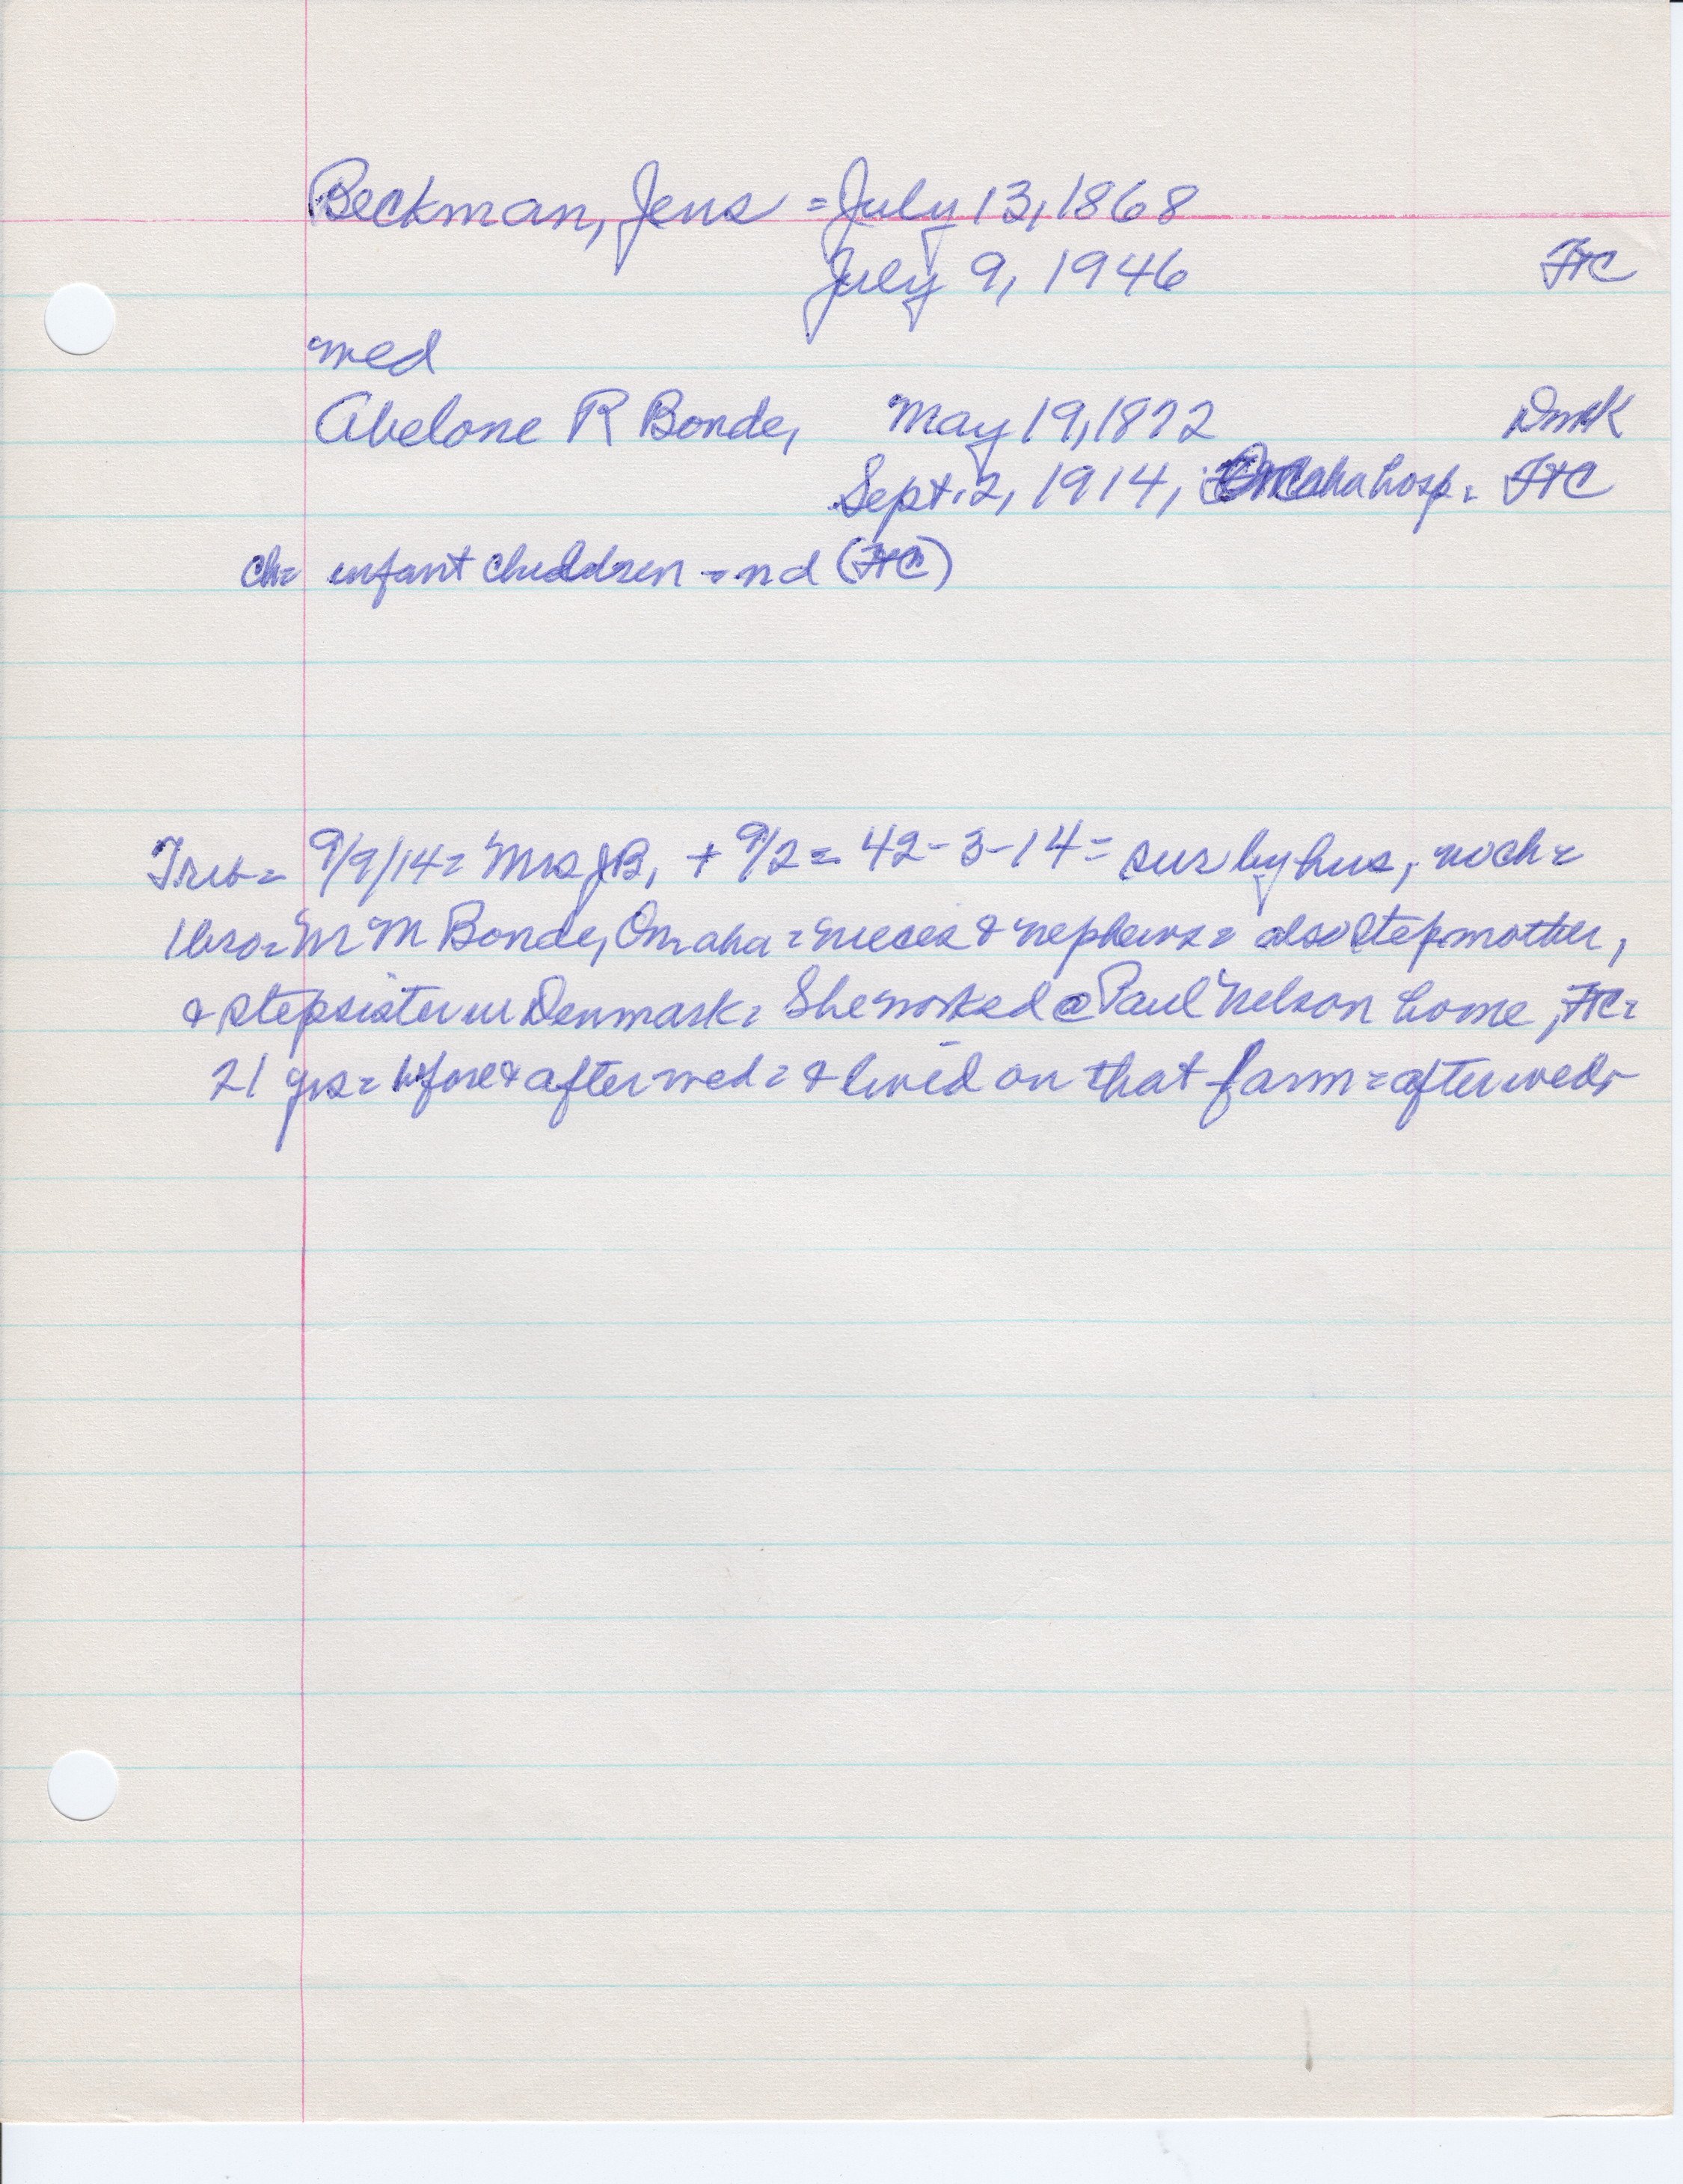 Beckman, Jens = July 13, 1868
July 9, 1946 FtC
wed
Abelone R Bonde, May 19, 1872 Dmk
Sept. 2, 1914, Omaha hosp. FtC
ch= infant children = nd (FtC)
Trib= 9/9/14= Mrs JB, + 9/2= 42-3-14= sur by hus, no ch=
1 bro= M M Bonde, Omaha = nieces & nephews = also stepmother,
& stepsister in Denmark = She worked @ Paul Nelson home, FtC=
21 yrs = before & after wed = & lived on that farm = after wed-